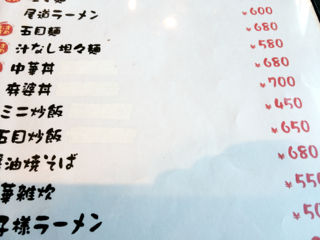 尾道ラーメン ¥600
五目麺 ¥680
汁なし坦々麺 ¥580
中華丼 ¥680
麻婆丼 ¥700
ミニ炒飯 ¥450
五目炒飯 ¥650
醤油焼そば ¥680
華雑炊 ¥550
子様ラーメン ¥50